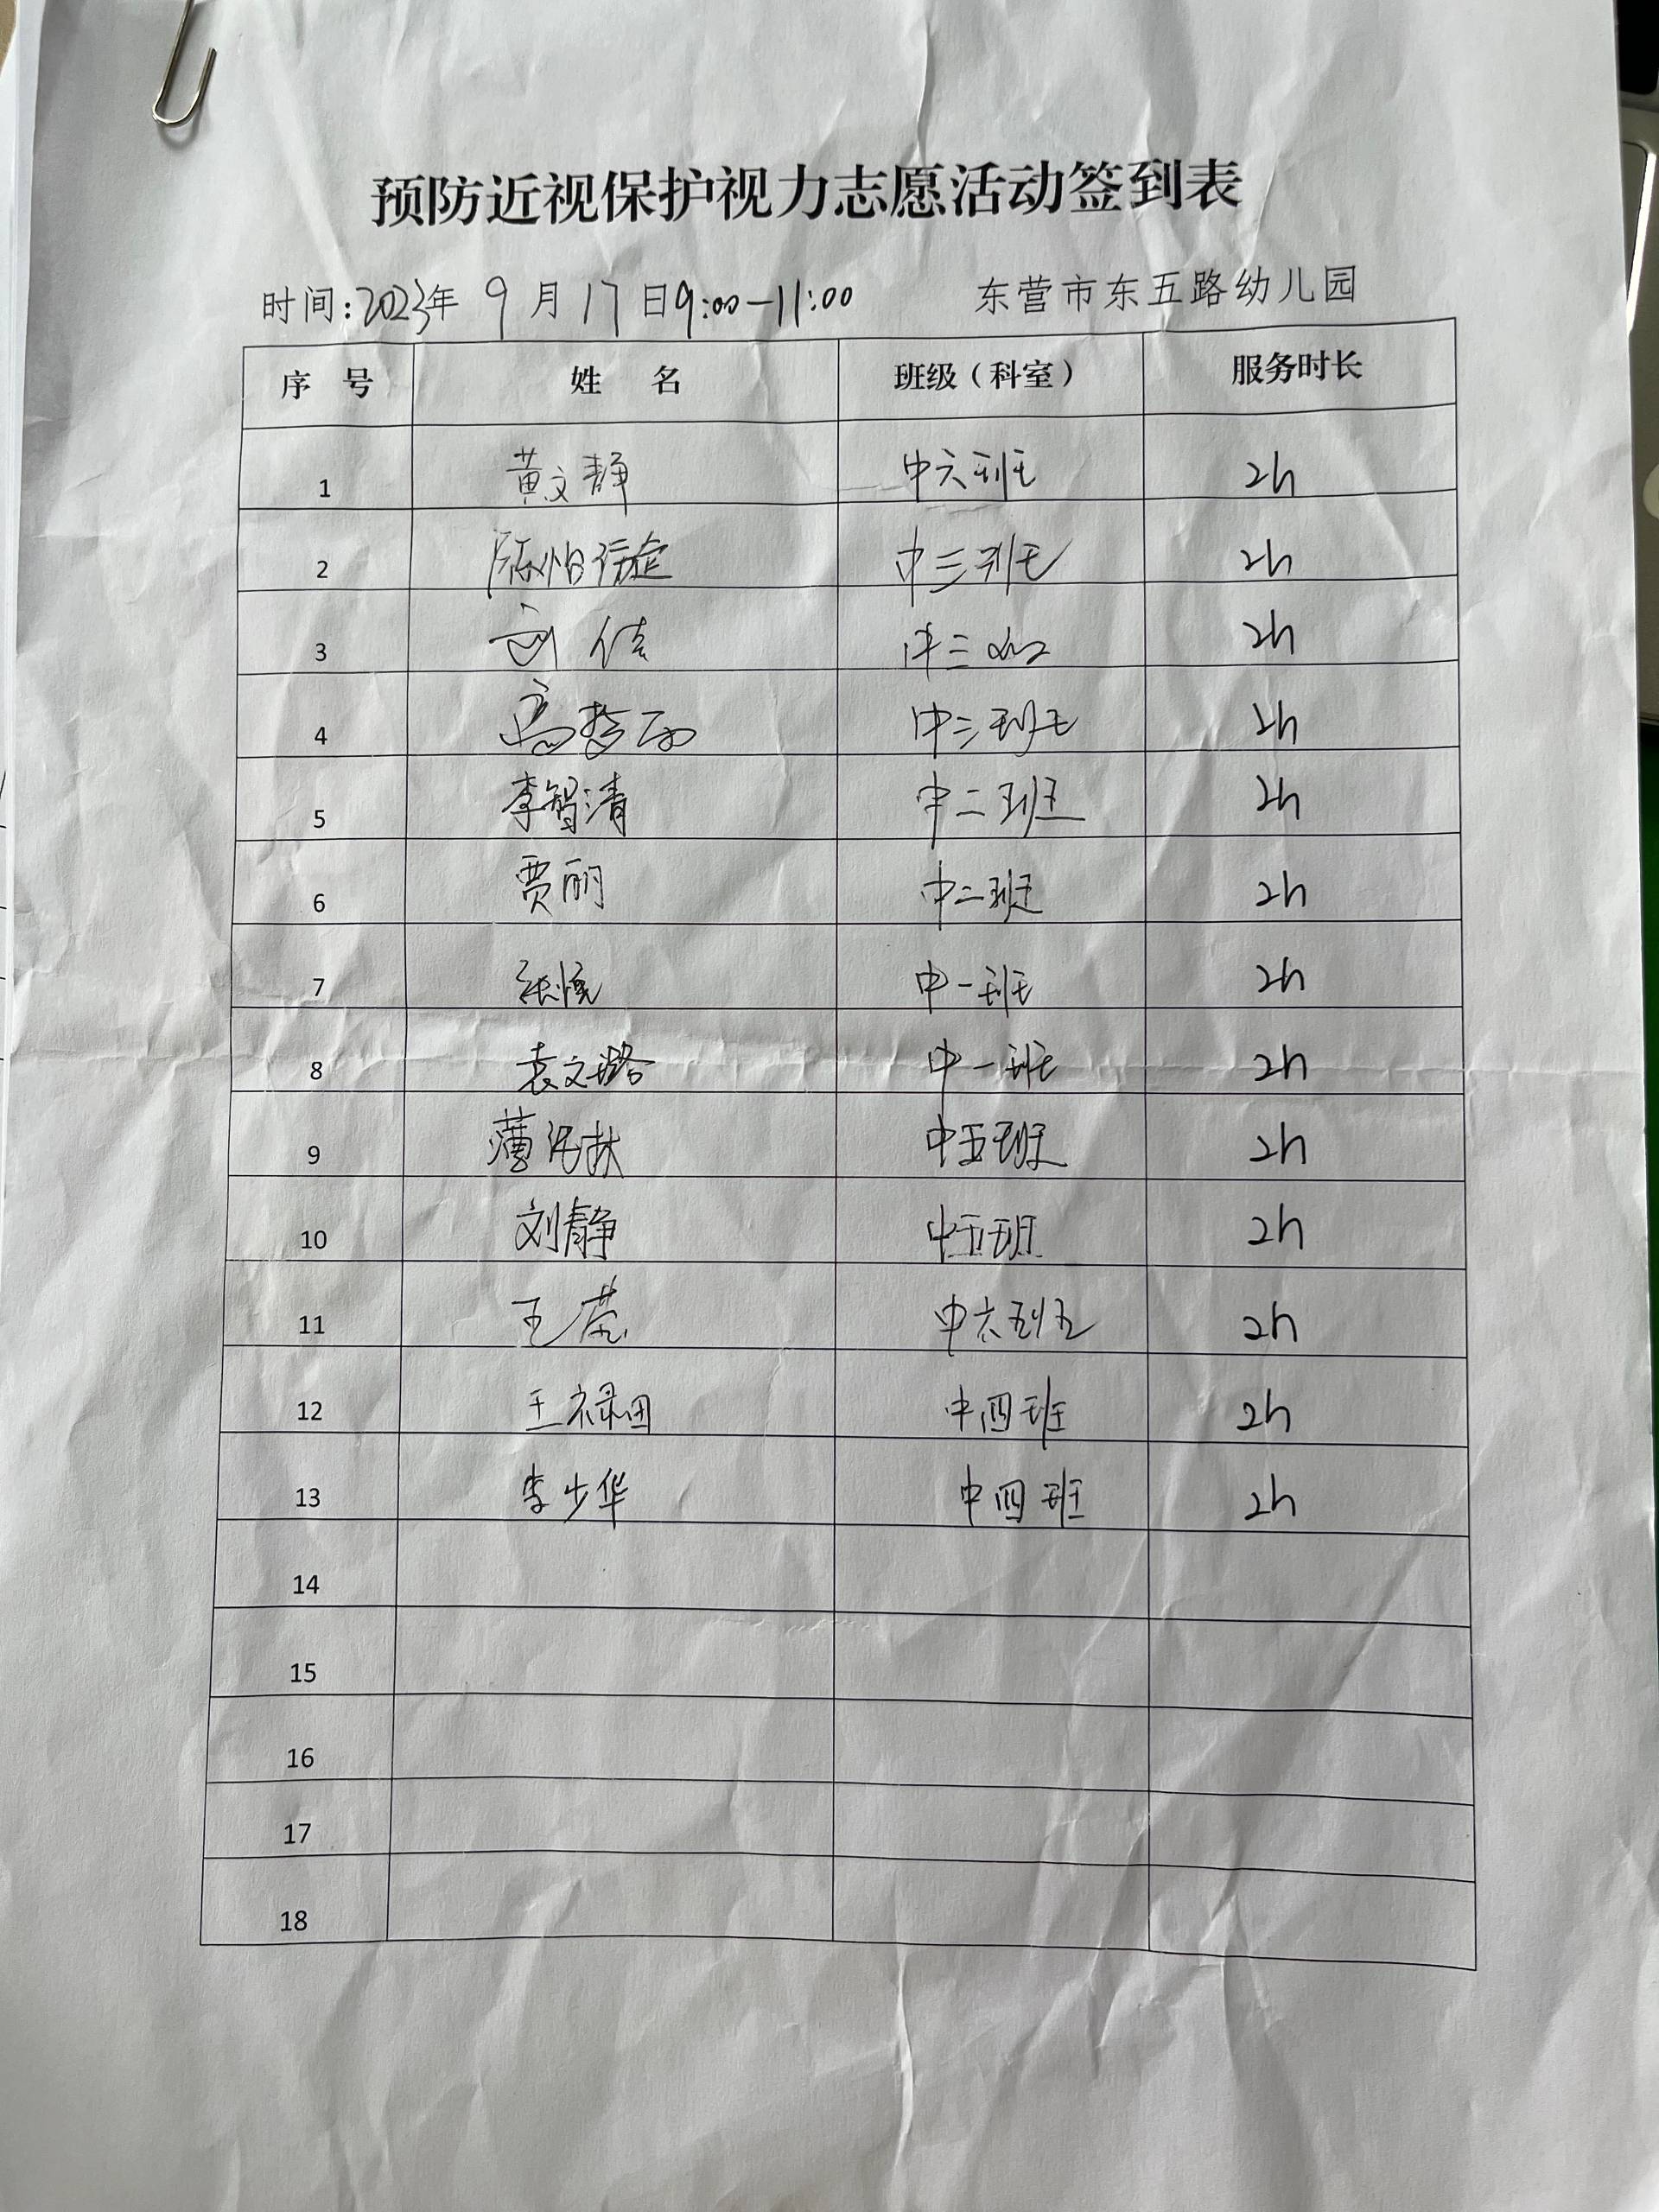 预防近视保护视力志愿活动签到表
时间:2023年 9月17日9:00-11:00 东营市东五路幼儿园
序 号 姓 名 班级(科室) 服务时长
1 黄文静 中六班 2h
2 中三班 2h
3 刘佳 中三班 2h
4 高梦 中三班 2h
5 李智清 中二班 2h
6 贾丽 中二班 2h
7 张悦 中一班 2h
8 袁文璐 中一班 2h
9 中五班 2h
10 刘静 中五班 2h
11 王莹 中六班 2h
12 王禄田 中四班 2h
13 李少华 中四班 2h
14
15
16
17
18